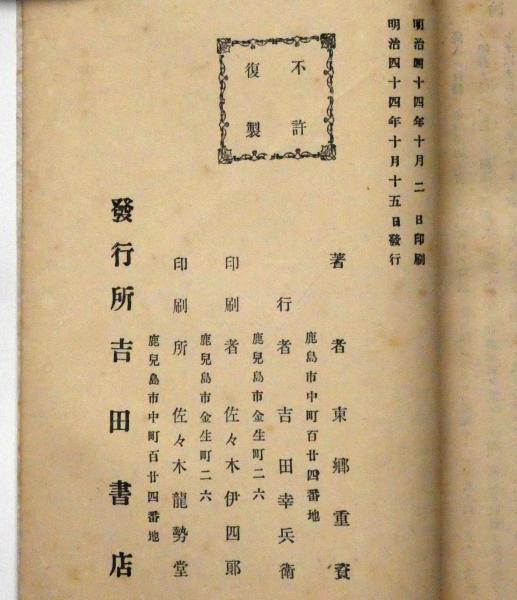 明治四十四年十月二日印刷
明治四十四年十月十五日發行
不許
復製
著者 東鄉重資
鹿島市中町百廿四番地
行者 吉田幸兵衛
鹿兒島市金生町二六
印刷者 佐々木伊四郎
鹿兒島市金生町二六
印刷所 佐々木龍勢堂
鹿兒島市中町百廿四番地
發行所 吉田書店